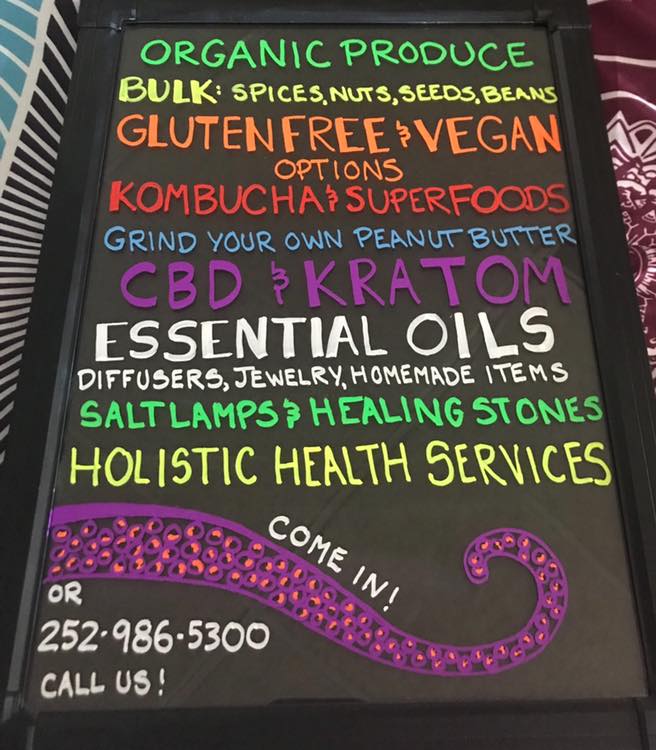 ORGANIC PRODUCE
BULK: SPICES, NUTS, SEEDS, BEANS
GLUTEN FREE & VEGAN
OPTIONS
KOMBUCHA & SUPERFOODS
GRIND YOUR OWN PEANUT BUTTER
CBD & KRATOM
ESSENTIAL OILS
DIFFUSERS, JEWELRY, HOMEMADE ITEMS
SALT LAMPS & HEALING STONES
HOLISTIC HEALTH SERVICES
COME IN!
OR
252-986-5300
CALL US!